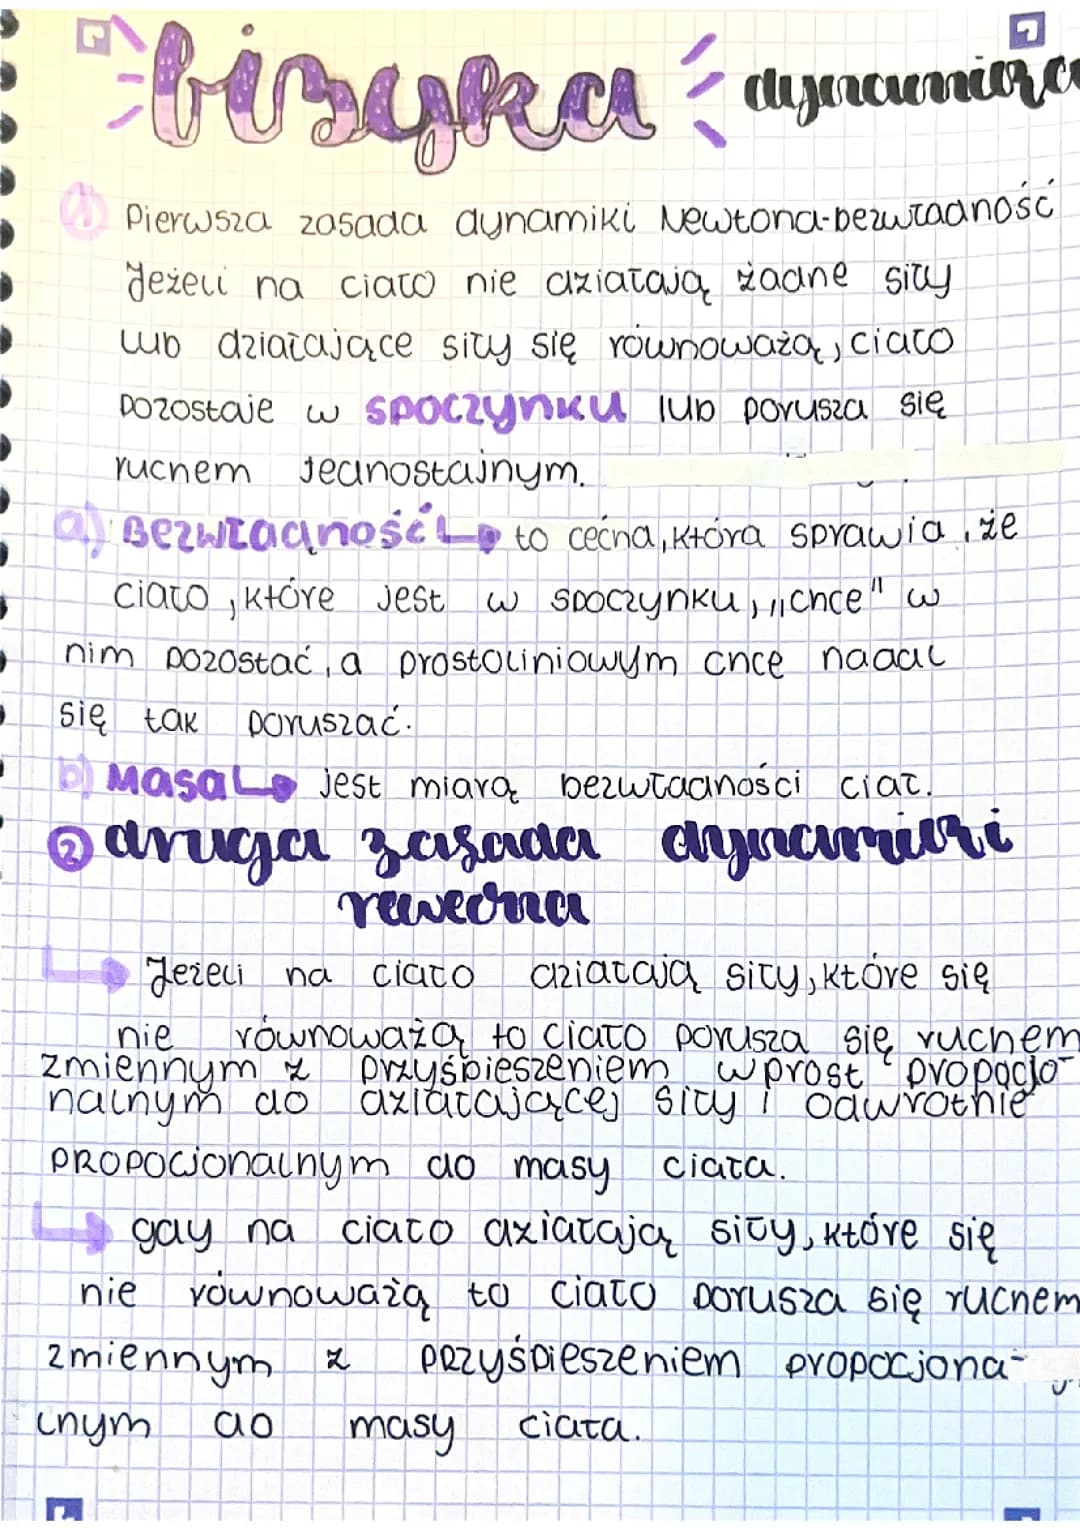 fizyka dynamika
1) Pierwsza zasada dynamiki Newtona-bezwładność
Jeżeli na ciało nie działają żadne siły
lub działające siły się równoważą, ciało
pozostaje w spoczynku lub porusza się
ruchem jednostajnym.
a) Bezwładność to cecha, która sprawia, że
ciało, które jest w spoczynku, „chce" w
nim pozostać, a prostoliniowym chce nadal
się tak poruszać.
b) Masa jest miarą bezwładności ciał.
2 druga zasada dynamiki
newtona
Jeżeli na ciało działają siły, które się
nie równoważą to ciało porusza się ruchem
zmiennym z przyśpieszeniem wprost propocjo-
nalnym do działającej siły i odwrotnie
propocjonalnym do masy ciała.
gdy na ciało działają siły, które się
nie równoważą to ciało porusza się ruchem
zmiennym z przyśpieszeniem propocjona-
lnym do masy ciała.